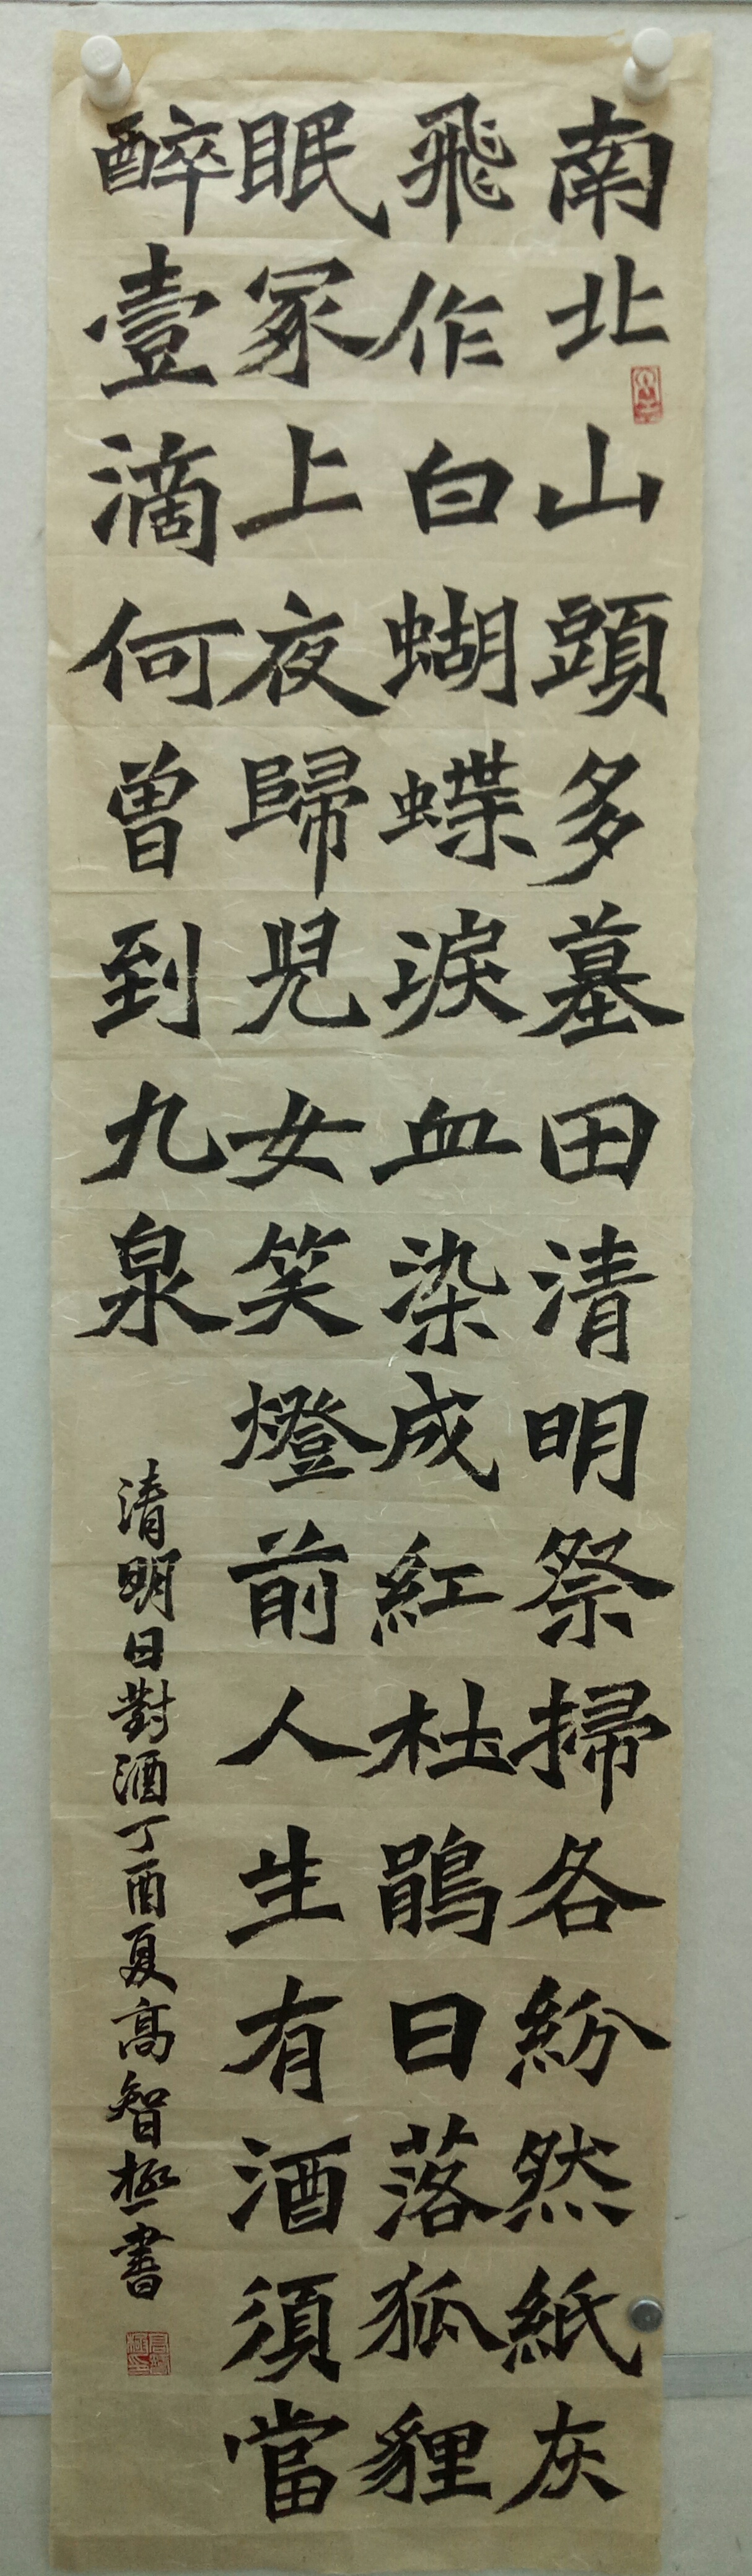 南北山頭多墓田清明祭掃各紛然紙灰
飛作白蝴蝶淚血染成紅杜鵑日落狐貍
眠冢上夜歸兒女笑燈前人生有酒須當
醉壹滴何曾到九泉
清明日對酒丁酉夏高智極書